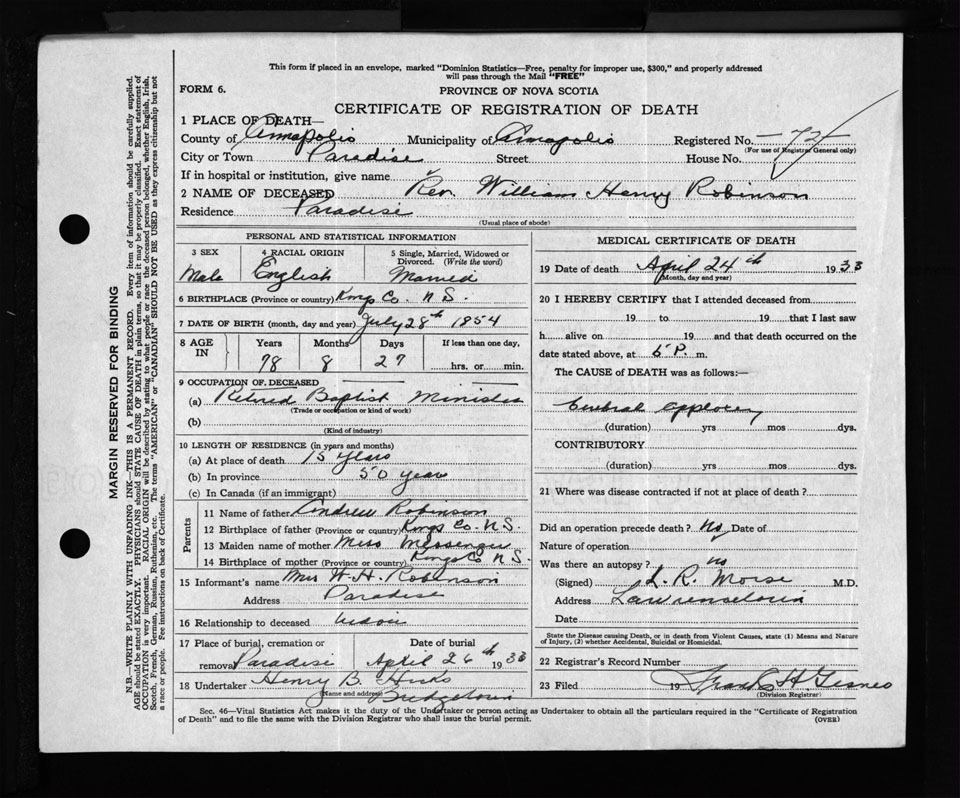 This form if placed in an envelope, marked "Dominion Statistics—Free, penalty for improper use, $300," and properly addressed
will pass through the Mail "FREE"
FORM 6.
PROVINCE OF NOVA SCOTIA
CERTIFICATE OF REGISTRATION OF DEATH
1 PLACE OF DEATH—
County of Annapolis Municipality of Annapolis Registered No. 72
(For use of Registrar General only)
City or Town Paradise Street House No.
If in hospital or institution, give name
2 NAME OF DECEASED Rev. William Henry Robinson
Residence Paradise
(Usual place of abode)
PERSONAL AND STATISTICAL INFORMATION
3 SEX 4 RACIAL ORIGIN 5 Single, Married, Widowed or
Divorced. (Write the word)
Male English Married
6 BIRTHPLACE (Province or country) Kings Co. N.S.
7 DATE OF BIRTH (month, day and year) July 28th 1854
8 AGE IN Years Months Days If less than one day,
78 8 27 hrs. or min.
9 OCCUPATION OF DECEASED
(a) Retired Baptist Minister
(Trade or occupation or kind of work)
(b)
(Kind of industry)
10 LENGTH OF RESIDENCE (in years and months)
(a) At place of death 15 years
(b) In province 50 year
(c) In Canada (if an immigrant)
Parents
11 Name of father Andrew Robinson
12 Birthplace of father (Province or country) Kings Co. N.S.
13 Maiden name of mother Miss Messenger
14 Birthplace of mother (Province or country) Kings Co N.S.
15 Informant's name Mrs W. H. Robinson
Address Paradise
16 Relationship to deceased
17 Place of burial, cremation or Date of burial
removal Paradise April 26th 1933
18 Undertaker Henry B. Hicks
(Name and address) Bridgetown
MEDICAL CERTIFICATE OF DEATH
19 Date of death April 24th 1933
(Month, day and year)
20 I HEREBY CERTIFY that I attended deceased from
19 to 19 that I last saw
h alive on 19 and that death occurred on the
date stated above, at 5 P. m.
The CAUSE of DEATH was as follows:—
Cerebral apploxey
(duration) yrs mos dys.
CONTRIBUTORY
(duration) yrs mos dys.
21 Where was disease contracted if not at place of death?
Did an operation precede death? No Date of
Nature of operation
Was there an autopsy? no
(Signed) L. R. Morse M.D.
Address Lawrencetown
Date
State the Disease causing Death, or in death from Violent Causes, state (1) Means and Nature
of Injury, (2) whether Accidental, Suicidal or Homicidal.
22 Registrar's Record Number
23 Filed 19 Frank H.
(Division Registrar)
Sec. 46—Vital Statistics Act makes it the duty of the Undertaker or person acting as Undertaker to obtain all the particulars required in the "Certificate of Registration
of Death" and to file the same with the Division Registrar who shall issue the burial permit.
(OVER)
MARGIN RESERVED FOR BINDING
N.B.—WRITE PLAINLY WITH UNFADING INK—THIS IS A PERMANENT RECORD. Every item of information should be carefully supplied.
AGE should be stated EXACTLY. PHYSICIANS should STATE CAUSE OF DEATH in plain terms, so that it may be properly classified. Exact statement of
OCCUPATION is very important. RACIAL ORIGIN will be described by stating to what people or race the deceased person belonged, whether English, Irish,
Scotch, French, German, Russian, Ruthenian, etc. The terms "AMERICAN" or "CANADIAN" SHOULD NOT BE USED as they express citizenship but not
a race or people. See instructions on back of Certificate.